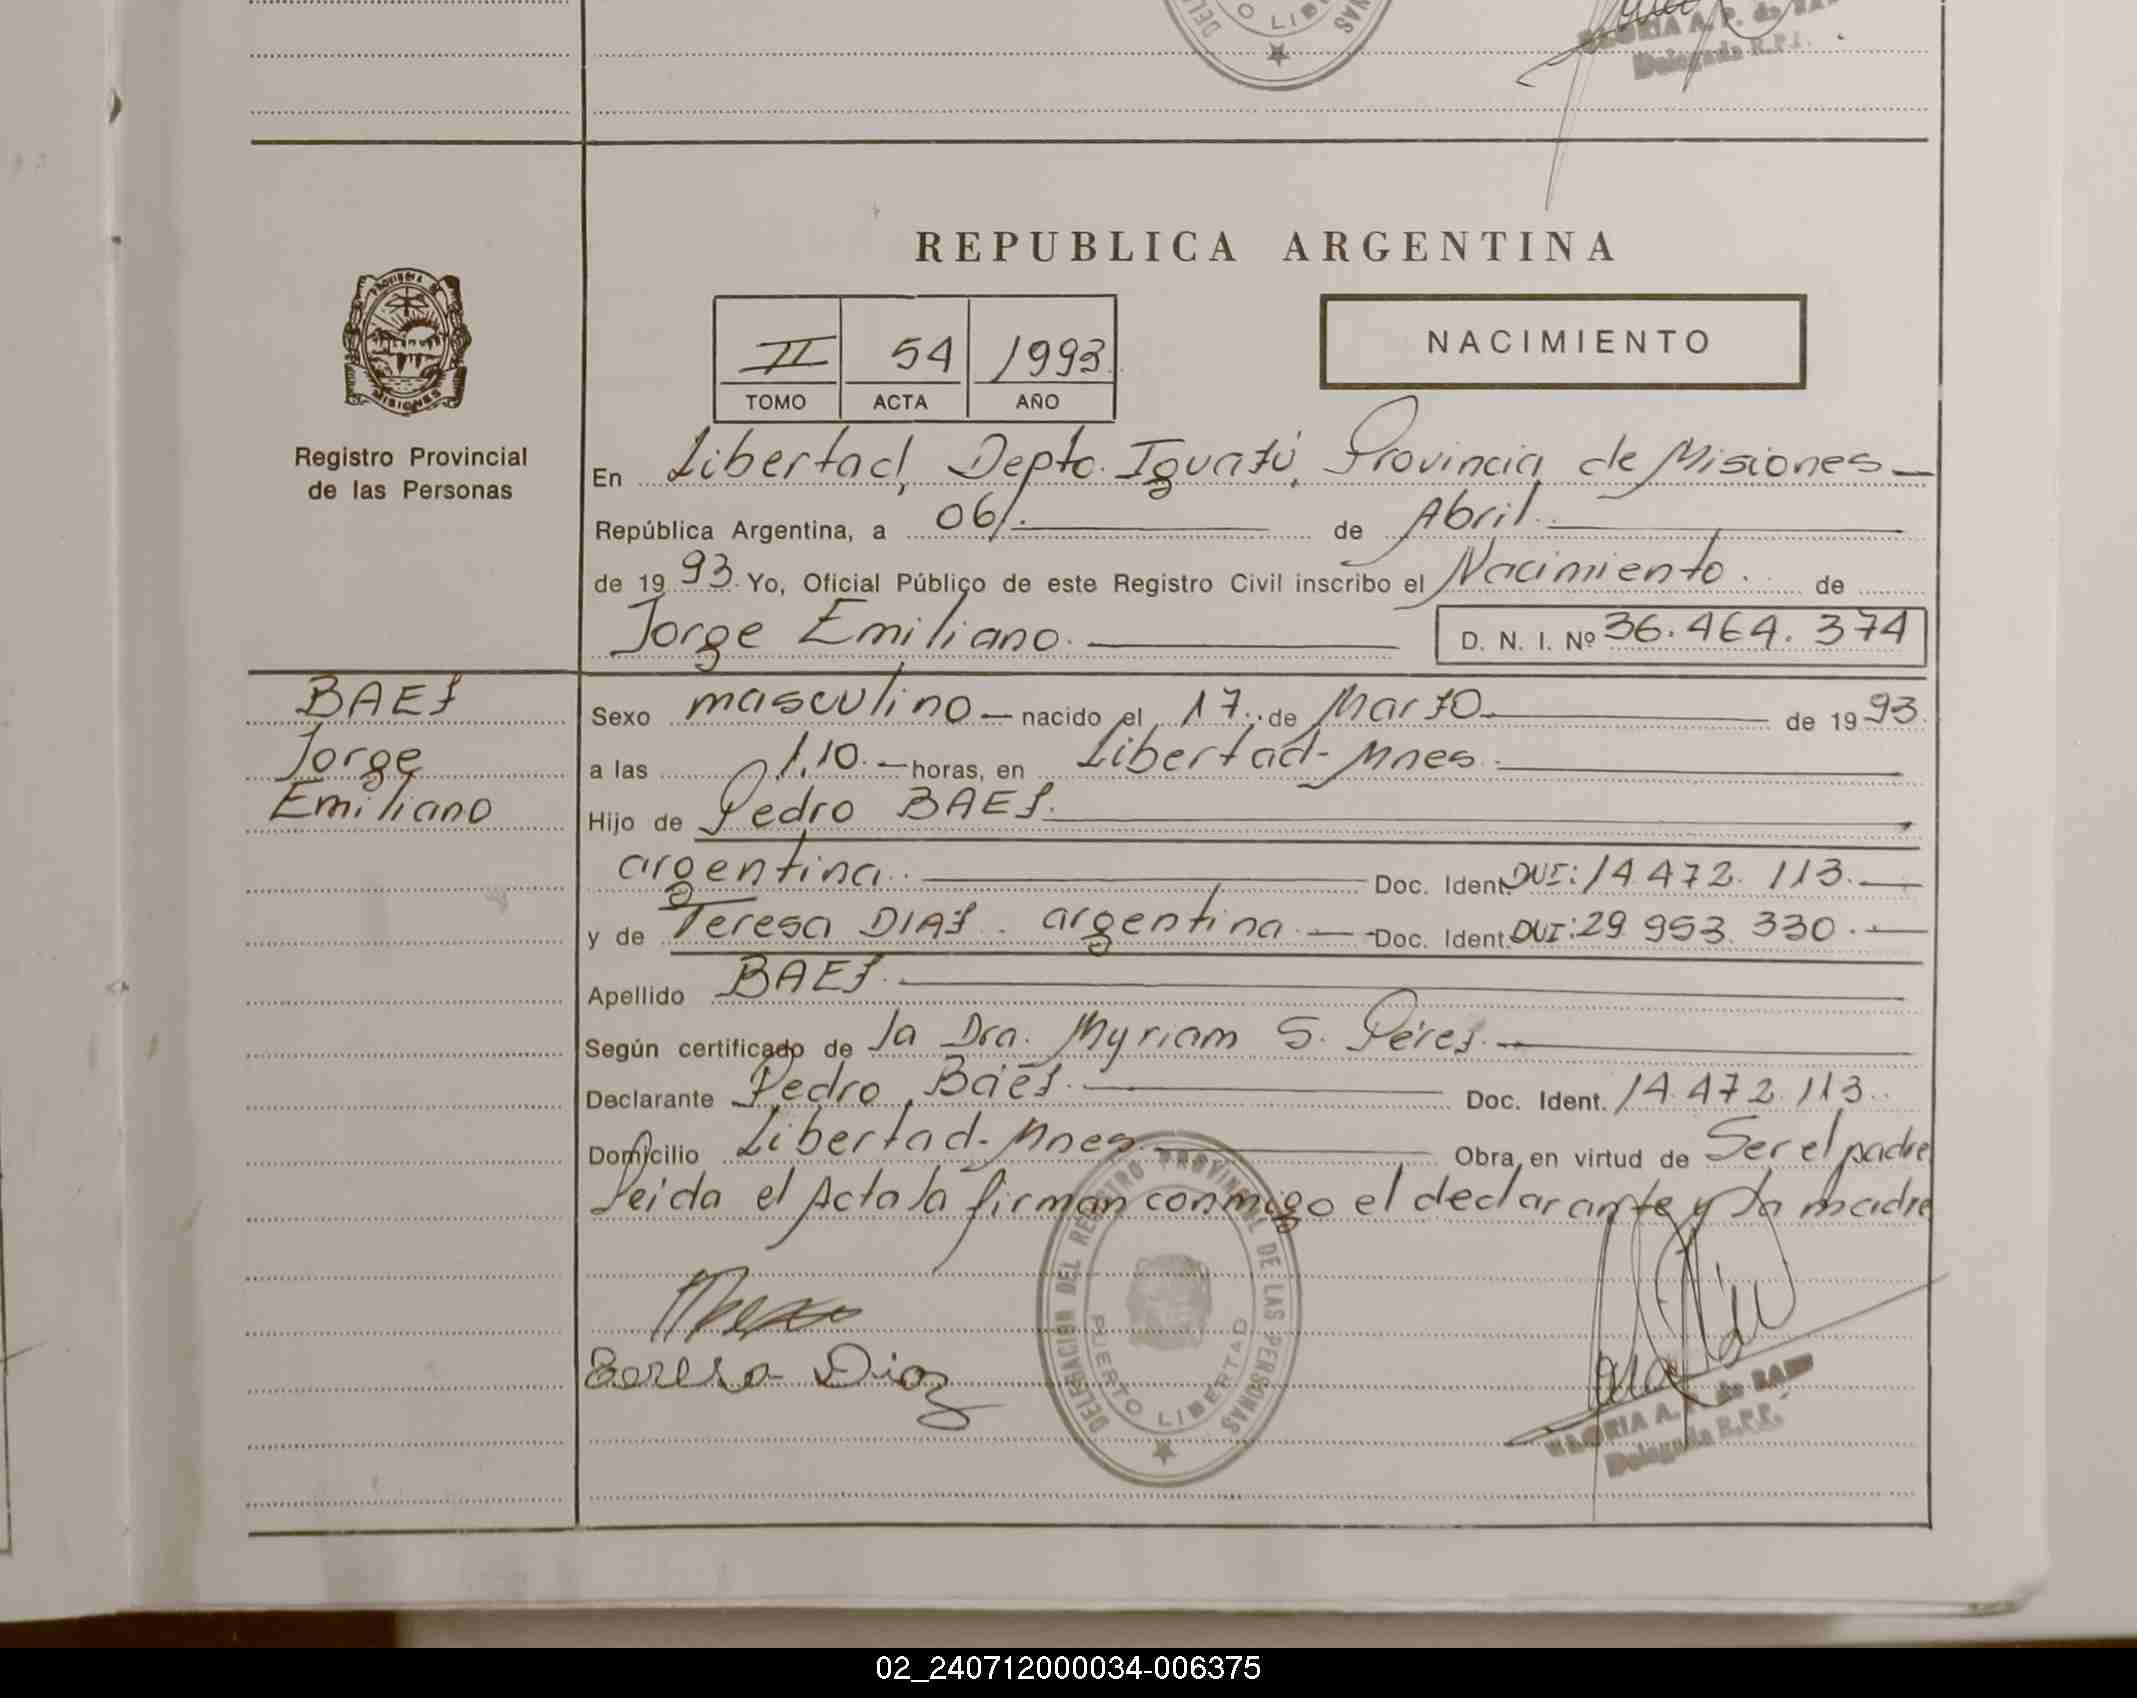 DEL
O LIB
NAS
GLORIA A. P. de BA
Delegada R.P.P.
REPUBLICA ARGENTINA
PROVINCIA DE
MISIONES
II 54 1993
TOMO ACTA AÑO
NACIMIENTO
Registro Provincial
de las Personas
En Libertad, Depto. Iguazú, Provincia de Misiones
República Argentina, a 06 de Abril
de 1993. Yo, Oficial Público de este Registro Civil inscribo el Nacimiento de
Jorge Emiliano. D. N. I. Nº 36.464.374
BAEZ
Jorge
Emiliano
Sexo masculino nacido el 17 de Marzo de 1993
a las 1,10 horas, en Libertad-Mnes.
Hijo de Pedro BAEZ.
argentina. Doc. Ident. DUI: 14 472. 113.
y de Teresa DIAZ. argentina Doc. Ident. DUI: 29 953. 330.
Apellido BAEZ.
Según certificado de la Dra. Myriam S. Pérez.
Declarante Pedro Baéz. Doc. Ident. 14.472.113.
Domicilio Libertad-Mnes. Obra en virtud de Ser el padre
Leida el Acta la firman conmigo el declarante y la madre
Teresa Diaz
DELEGACION DEL REGISTRO PROVINCIAL DE LAS PERSONAS
PUERTO LIBERTAD
GLORIA A. P. de BAEZ
Delegada R.P.P.
02_240712000034-006375